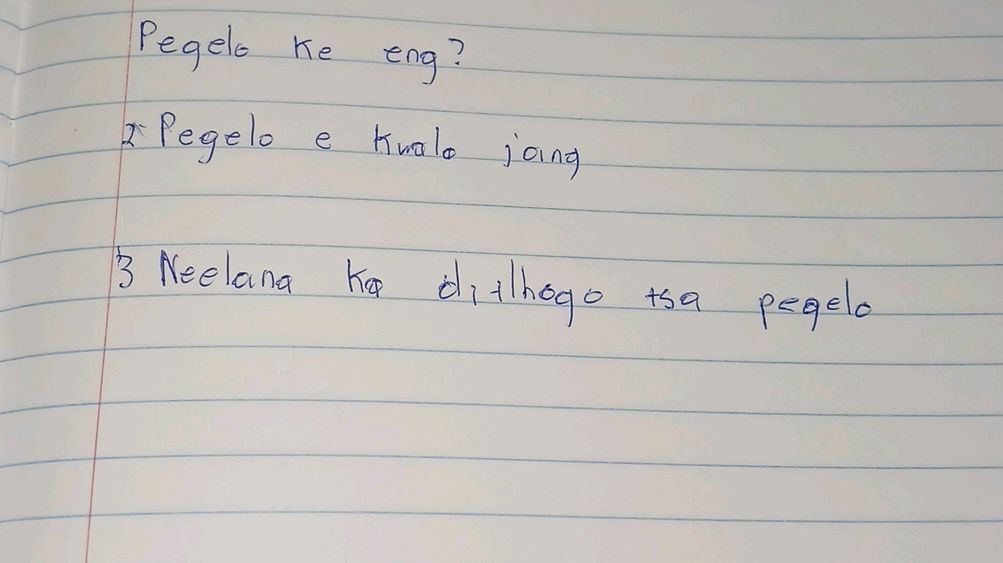 Pegelo ke eng?
2 Pegelo e kwalo jang
3 Neelana ka ditlhogo tsa pegelo